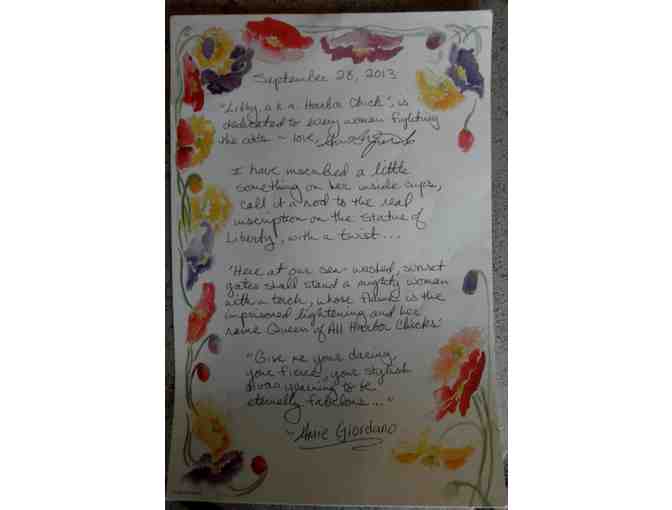 September 28, 2013
"Libby, a.k.a. Harbor Chick", is
dedicated to every women fighting
the odds ~ love,
I have inscribed a little
something on her inside cups,
call it a nod to the real
inscription on the Statue of
Liberty, with a twist...
"Here at our sea-washed, sunset
gates shall stand a mighty woman
with a torch, whose flame is the
imprisoned lightening and her
name Queen of All Harbor Chicks"
"Give me your daring,
your fierce, your stylish
divas yearning to be
eternally fabulous..."
~ Amie Giordano